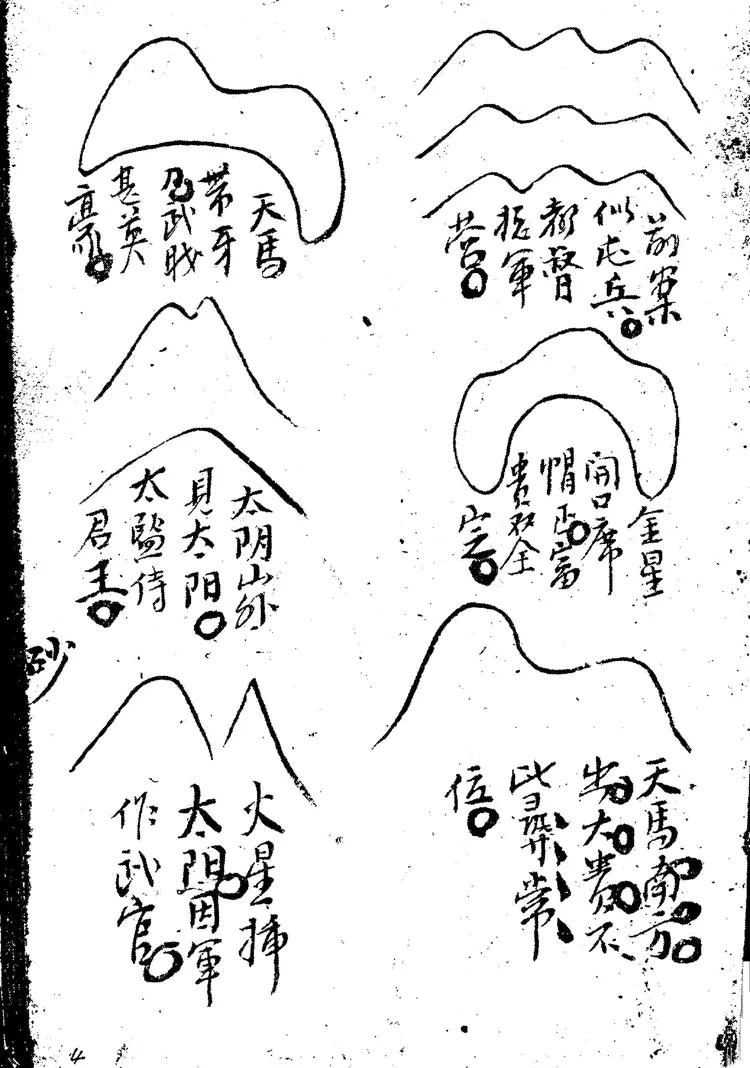 前案
似屯兵
都督
総軍
營
金星
開口席
帽正富
貴双全
定
天馬南方
出大貴不
比尋常
位
天馬
帶牙
武職
甚英
豪
太阴山外
見太阳
太監侍
君王
火星挿
太阳因軍
作武官
砂
4